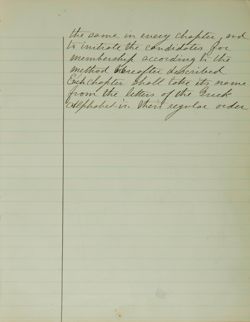 the same in every chapter, and
to initiate the candidates for
membership according to the
method hereafter described
Each chapter shall take its name
from the letters of the Greek
Alphabet in their regular order